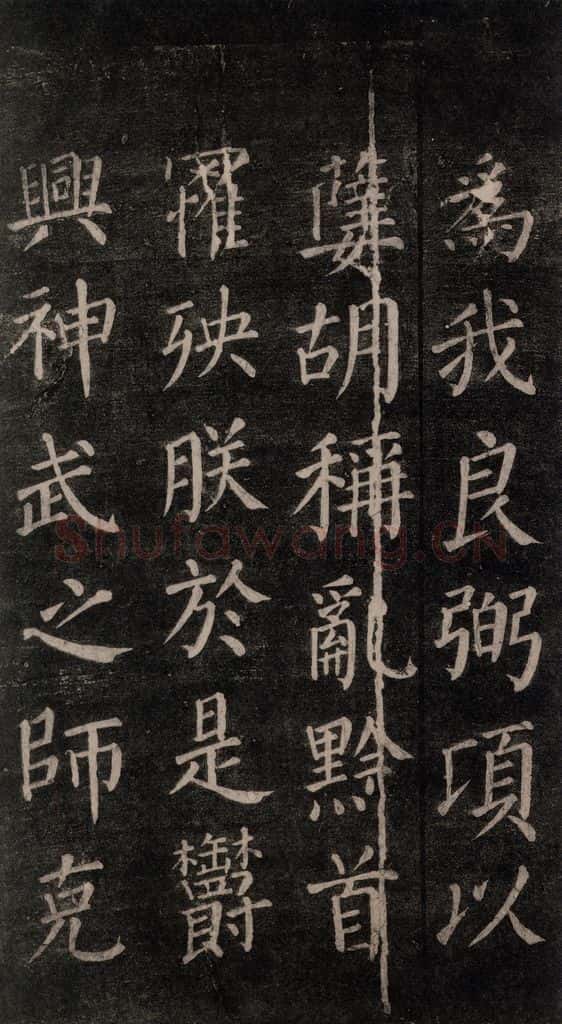 為我良弼項以
孽胡稱亂黔首
罹殃朕於是欝
興神武之師克
Shufawang.CN